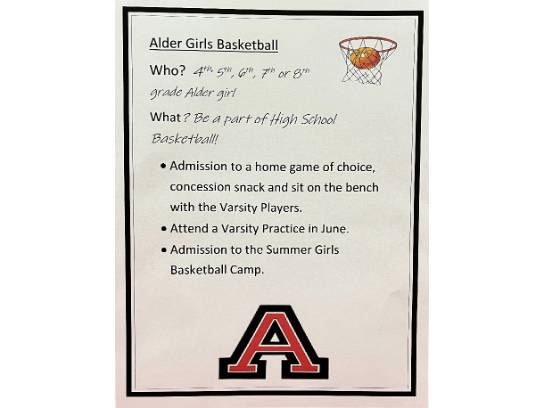 Alder Girls Basketball
Who? 4th, 5th, 6th, 7th or 8th
grade Alder girl
What? Be a part of High School
Basketball!
• Admission to a home game of choice,
concession snack and sit on the bench
with the Varsity Players.
• Attend a Varsity Practice in June.
• Admission to the Summer Girls
Basketball Camp.
A